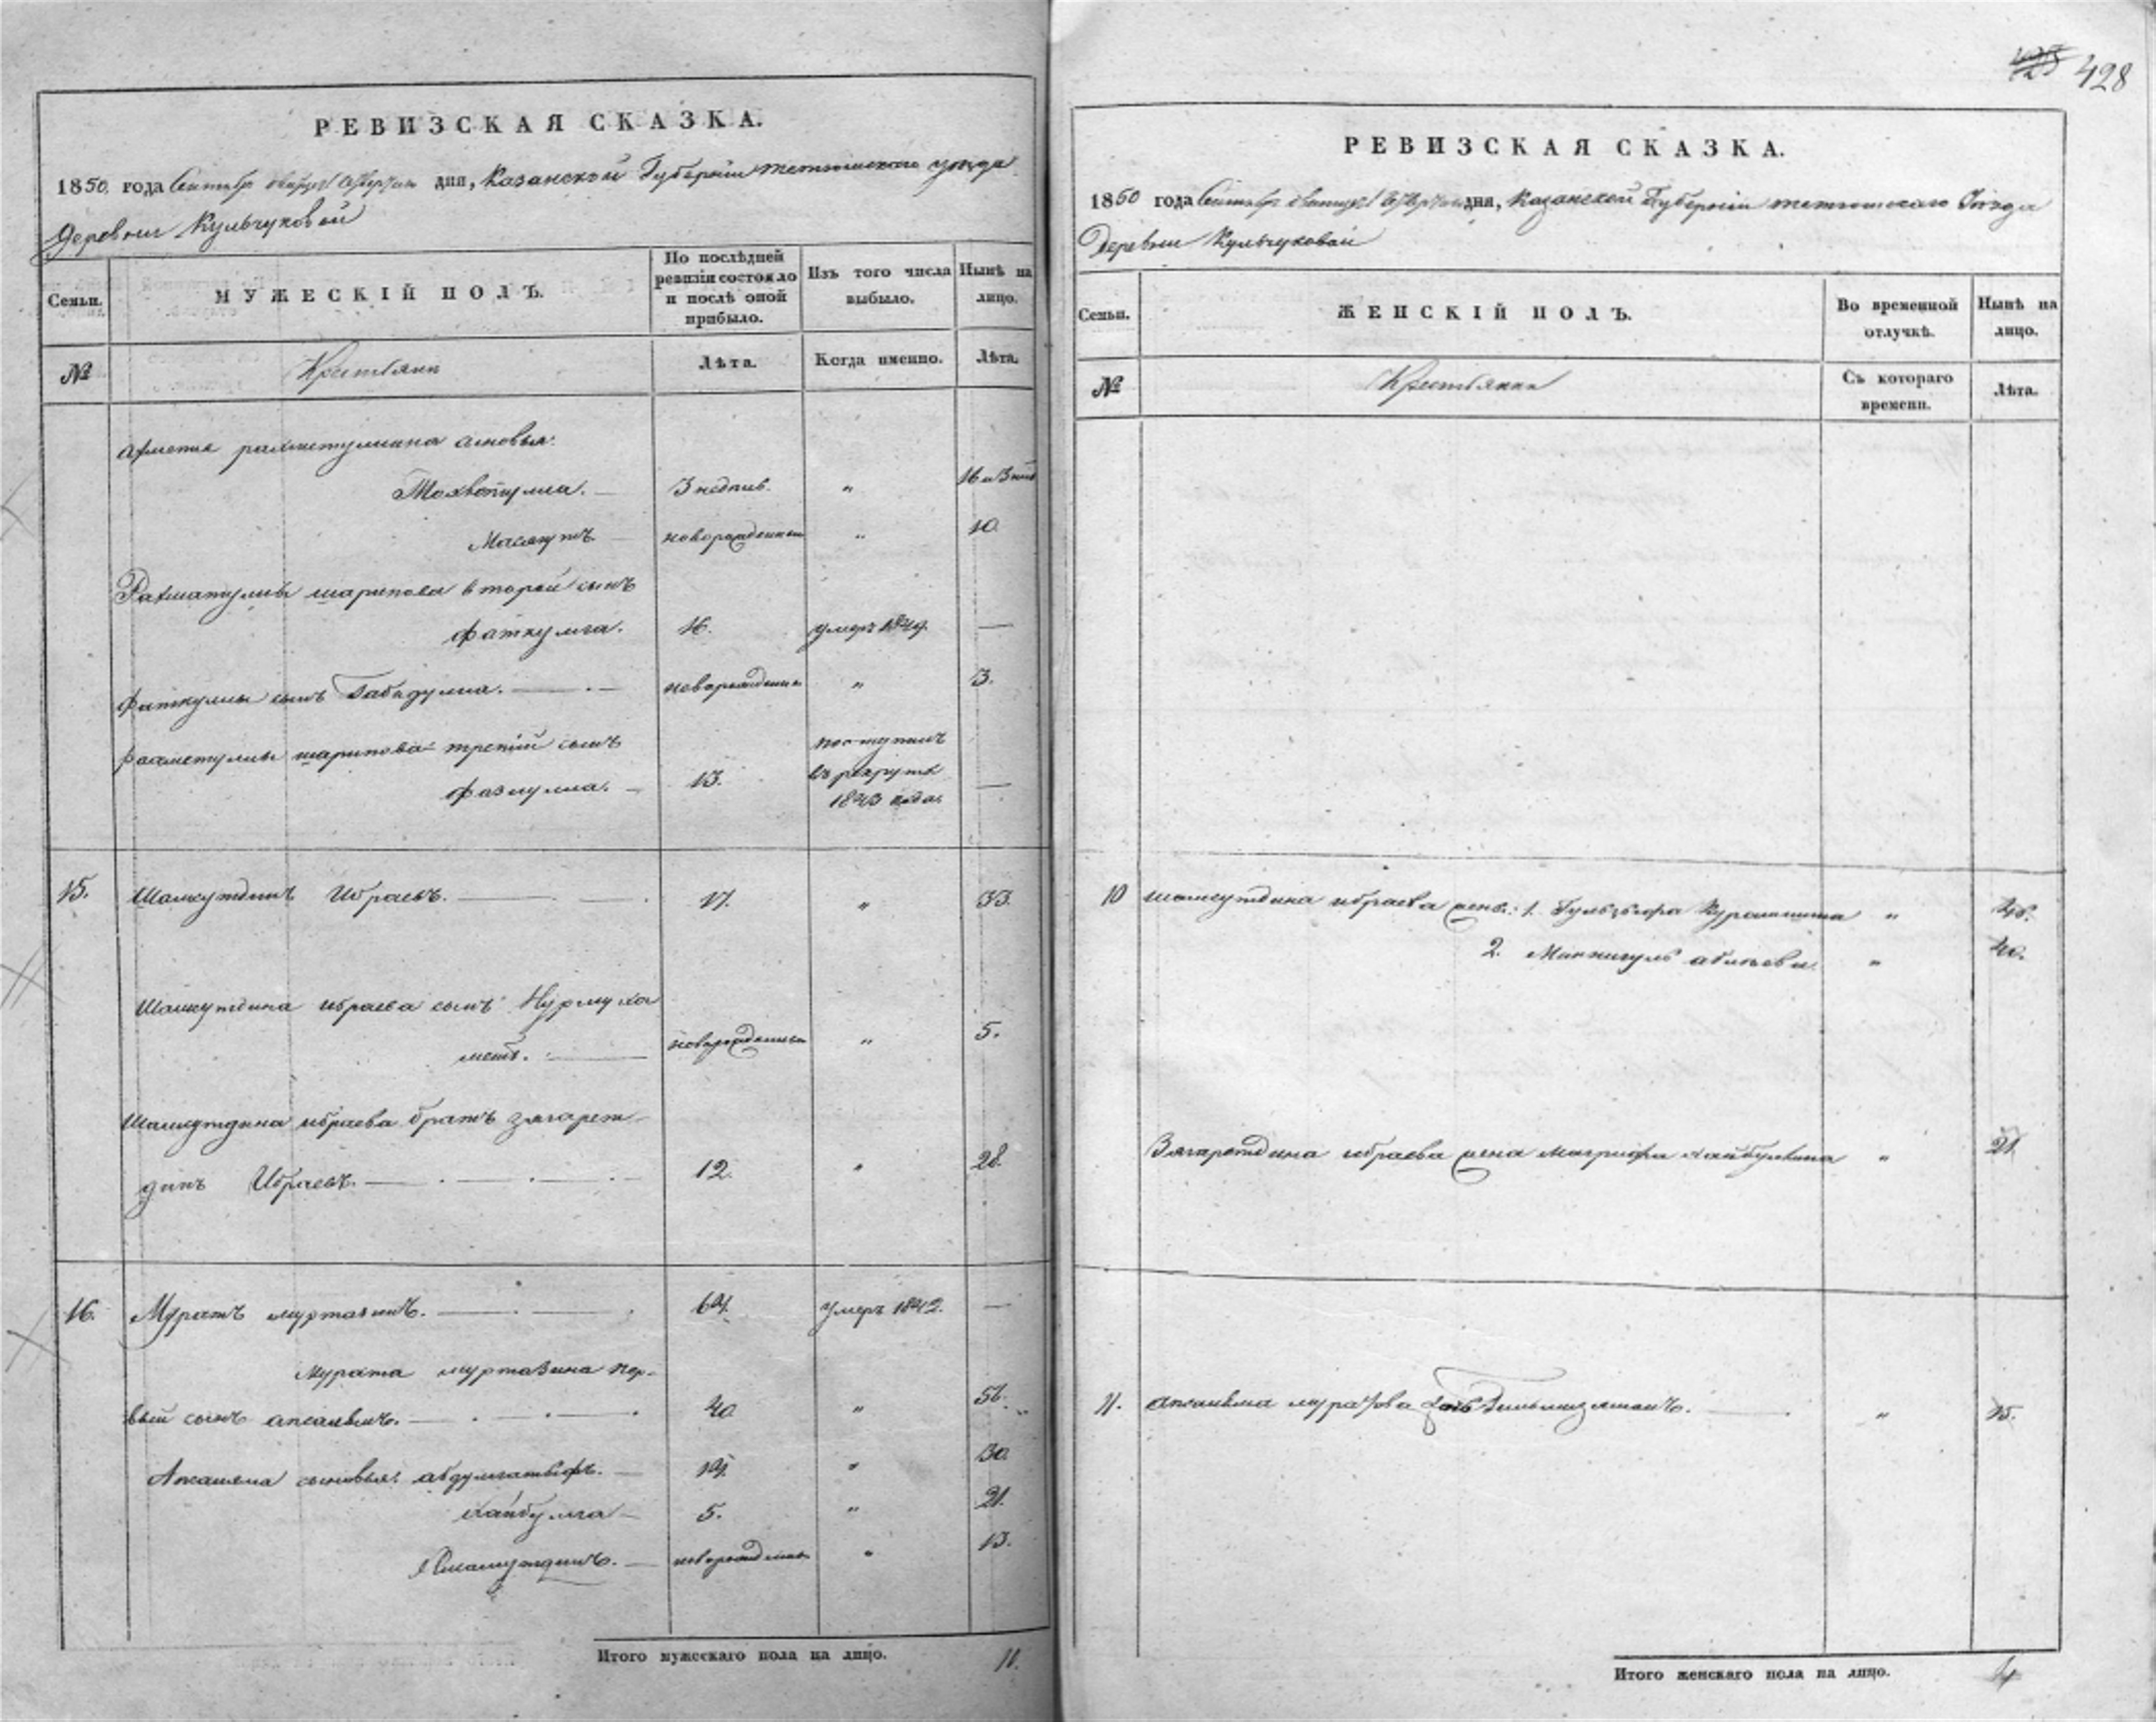 РЕВИЗСКАЯ СКАЗКА.
1850 года Сентября двадцать дня, Казанской Губернии тетюшскаго уезда
Деревни Кульчуковой
Семьи.
МУЖЕСКІЙ ПОЛЪ.
По послѣдней ревизіи состояло и послѣ оной прибыло.
Изъ того числа выбыло.
Нынѣ на лицо.
№
Крестьяне
Лѣта.
Когда именно.
Лѣта.
рахметуллина сыновья:
3 недпив. „
Масягутъ новорожденный „ 10.
Рахматуллы шарипова второй сынъ
фаткулла. 16. умеръ 1849. —
Фаткуллы сынъ Габидулла. новорожденный „ 3.
рахметуллы шарипова третій сынъ
фазлулла. 13. поступилъ въ рекруты 1843 года. —
15. Шамсутдинъ Ибраевъ. 17. „ 33.
Шамсутдина ибраева сынъ Нурмуха
метъ. новорожденный „ 5.
Шамсутдина ибраева братъ зягарет
динъ Ибраевъ. 12. „ 28.
16. Муратъ муртазинъ. 64. умеръ 1842. —
Мурата муртазина пер-
вый сынъ 40 „ 56.
сыновья: абдуллатыфъ. 14. „ 30.
хайбулла 5. „ 21.
новорожденный „ 13.
Итого мужескаго пола на лицо. 11.
428
РЕВИЗСКАЯ СКАЗКА.
1850 года Сентября двадцать дня, Казанской Губерніи тетюшскаго Уезда
Деревни Кульчуковой
Семьи.
ЖЕНСКІЙ ПОЛЪ.
Во временной отлучкѣ.
Нынѣ на лицо.
№
Крестьянки
Съ котораго времени.
Лѣта.
10 шамсутдина ибраева жены: 1. „
2. „ 40.
Зягаретдина ибраева жена хайбуллина „ 21
11. муратова „ 15.
Итого женскаго пола на лицо. 4